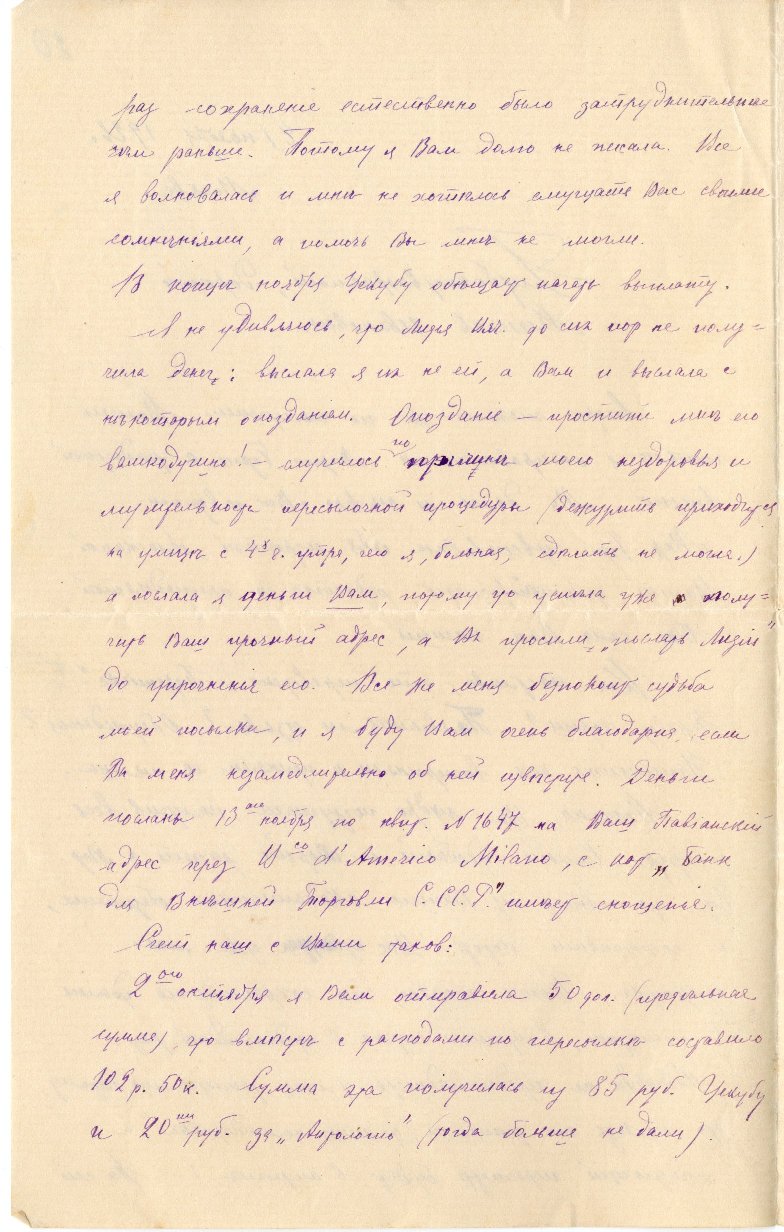 раз сохраненіе естественно было затруднительнѣе
чѣм раньше. Потому я Вам долго не писала. Все
я волновалась и мнѣ не хотѣлось смущать Вас своими
сомнѣніями, а помочь Вы мнѣ не могли.
В концѣ ноября Цекубу обѣщает начать выплату.
Я не удивляюсь, что Лидія Ивч. до сих пор не полу=
чила денег: выслала я их не ей, а Вам и выслала с
нѣкоторым опозданіем. Опозданіе — простите мнѣ его
великодушно! — случилось по причинѣ моего нездоровья и
мучительности пересылочной процедуры (дежурить приходится
на улицѣ с 4х ч. утра, чего я, больная, сдѣлать не могла.)
а послала я деньги Вам, потому что успѣла уже полу=
чить Ваш прочный адрес, а Вы просили „послать Лидіи"
до упроченія его. Все же меня безпокоит судьба
моей посылки, и я буду Вам очень благодарна, если
Вы меня незамедлительно об ней извѣстите. Деньги
посланы 13ого ноября по квит. N 1647 на Ваш Павіанскій
адрес через Uco d'America Milano, с кот. „Банк
для Внѣшней Торговли С.С.С.Р." имѣет сношеніе.
Счет наш с Вами таков:
2ого октября я Вам отправила 50 дол. (предѣльная
сумма), что вмѣстѣ с расходами по пересылкѣ составило
102 р. 50 к. Сумма эта получилась из 85 руб. Цекубу
и 20ти руб. за „Антологію" (тогда больше не дали).